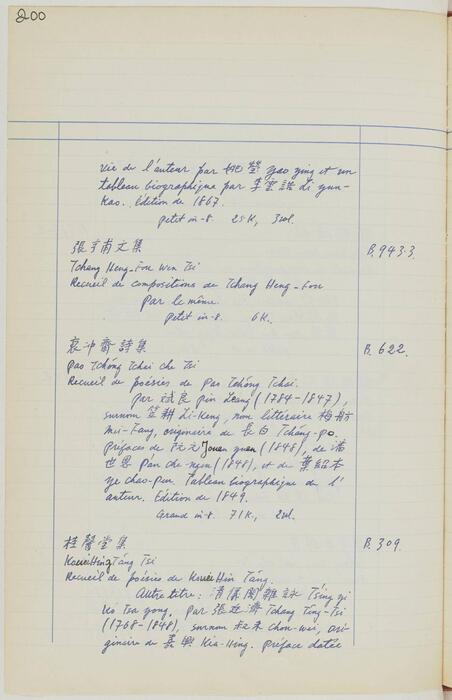 200
vie de l'auteur par 姚瑩 Yao ying et un
tableau biographique par 李雲誥 Li yun-
Kao. Edition de 1867.
petit in-8. 25 K, 3 vol.
張亨甫文集 B.943.3
Tchang Heng-Fou Wen Tsi
Recueil de compositions de Tchang Heng-Fou
Par le même.
Petit in-8. 6 K.
裒冲齋詩集 B. 622.
Pao Tchóng Tchai che Tsi
Recueil de poésies de Pao Tchóng Tchai.
par 斌良 Pin Leang (1784-1847),
surnom 笠耕 Li-Keng, nom littéraire 梅舫
Mei-Fang, originaire de 長白 Tchâng-po.
Préfaces de 阮元 Jouan yuan (1848), de 潘
世恩 Pan che-ngen (1848), et de 葉紹本
Ye chao-pen. Tableau biographique de l'
auteur. Edition de 1849.
Grand in-8. 7 K, 2 vol.
桂馨堂集 B. 309.
Kouei Hing Táng Tsi
Recueil de poésies de Kouei Hin Táng.
Autre titre: 清儀閣雜詠 Ts'ing yi
Ko tsa yong. Par 張廷濟 Tchang Ting-Tsi
(1768-1848), surnom 叔未 Chou-wei, ori-
ginaire de 嘉興 Kia-Hing. Préface datée